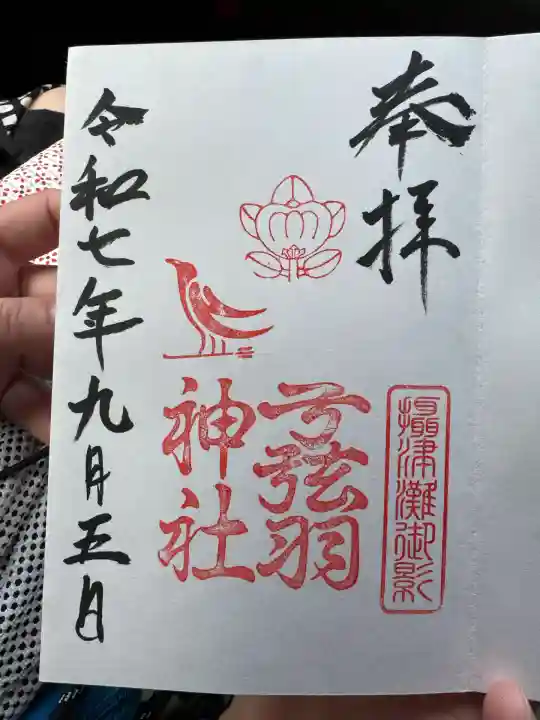 奉拝
摂津灘御影
弓弦羽
神社
令和七年九月五日